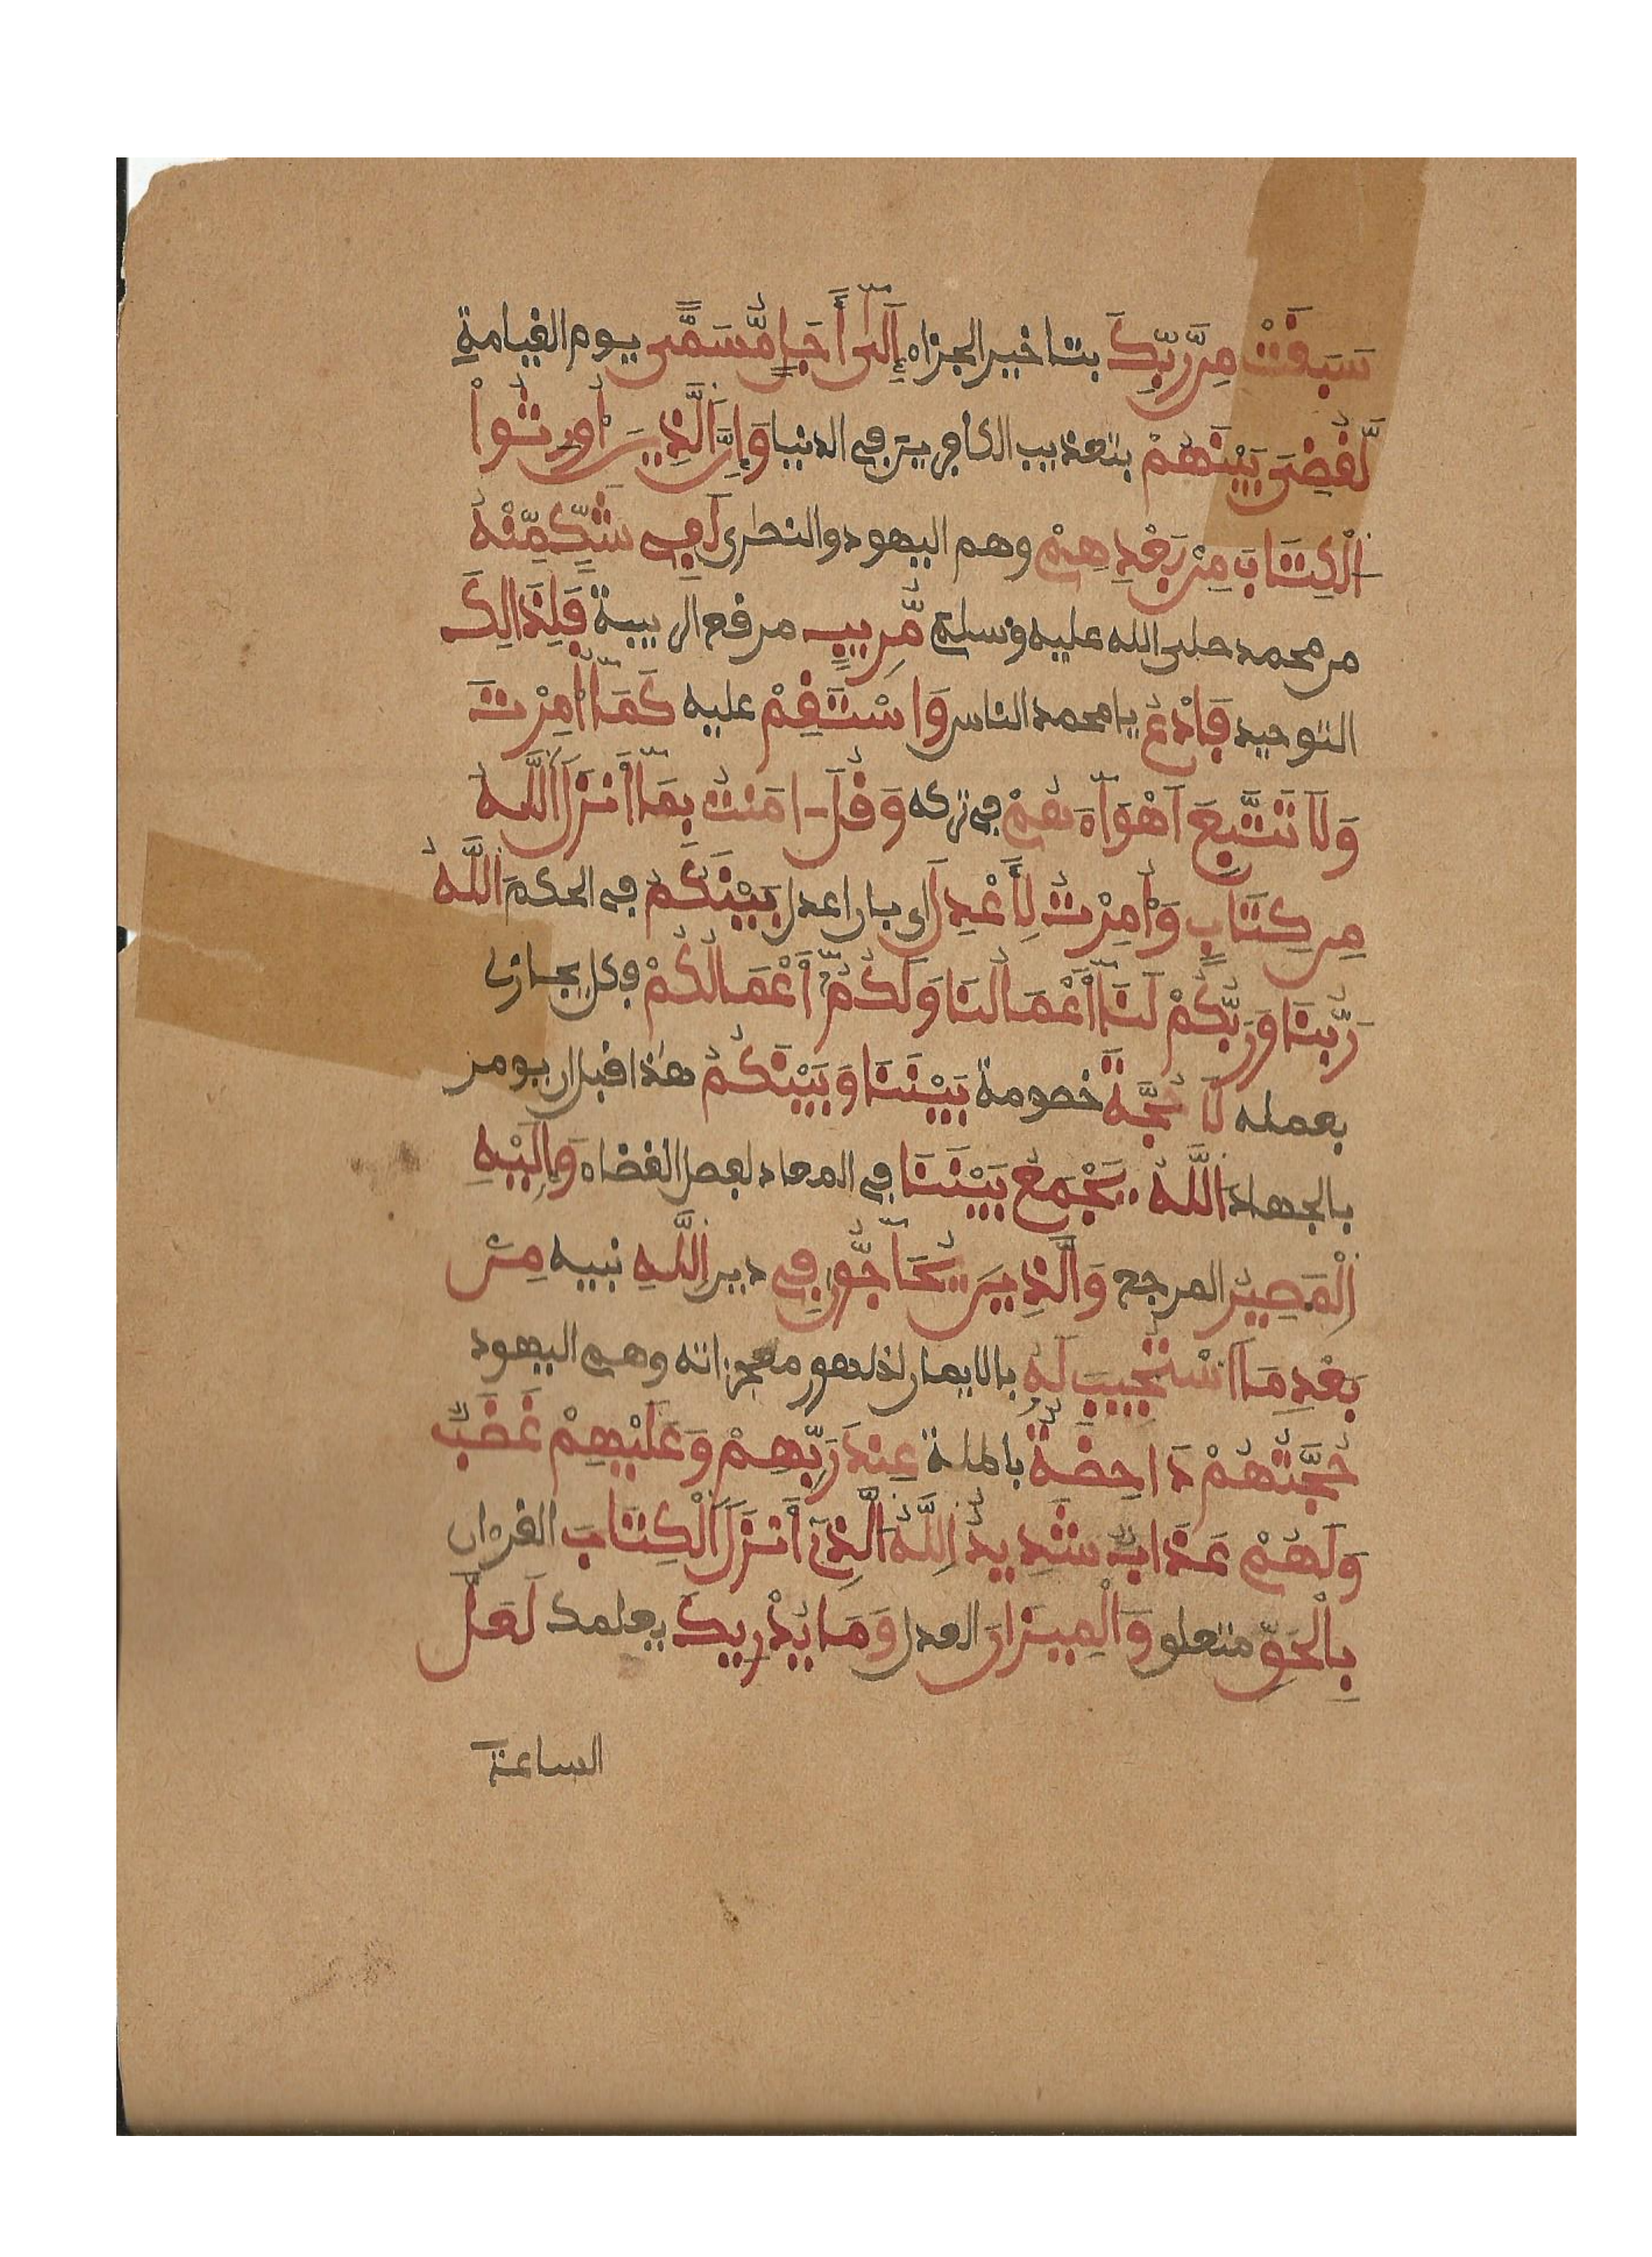 سَبَقَتْ مِن رَّبِّكَ بتاخير الجزاء إِلَىٰ أَجَلٍ مُّسَمًّى يوم القيامة
لَّقُضِىَ بَيْنَهُمْ بتعذيب الكافرين في الدنيا وَإِنَّ ٱلَّذِينَ أُورِثُوا۟
ٱلْكِتَابَ مِنۢ بَعْدِهِمْ وهم اليهود والنصرى لَفِى شَكٍّ مِّنْهُ
من محمد صلى الله عليه وسلم مُرِيبٍ موقع الريبة فَلِذَالِكَ
التوحيد فَادْعُ يا محمد الناس وَاسْتَقِمْ عليه كَمَآ أُمِرْتَ
وَلَا تَتَّبِعَ اَهْوَآءَهُمْ في تركه وَقُلَ ـامَنتُ بِمَآ أَنزَلَ ٱللَّهُ
مِن كِتَابٍ وَأُمِرْتُ لِأَعْدِلَ اي بان اعدل بَيْنَكُمُ في الحكم ٱللَّهُ
رَبُّنَا وَرَبُّكُمْ لَنَآ أَعْمَالُنَا وَلَكُمُ أَعْمَالُكُمْ فكل يجازى
بعمله لَا حُجَّةَ خصومة بَيْنَنَا وَبَيْنَكُمُ هذا قبل ان يومر
بالجهاد ٱللَّهُ يَجْمَعُ بَيْنَنَا في المعاد لفصل القضاء وَإِلَيْهِ
ٱلْمَصِيرُ المرجع وَٱلَّذِينَ يُحَآجُّونَ فِى دين ٱللَّهِ نبيه مِنۢ
بَعْدِ مَا ٱسْتُجِيبَ لَهُۥ بالايمان لظهور معجزاته وهم اليهود
حُجَّتُهُمْ دَاحِضَةٌ باطلة عِندَ رَبِّهِمْ وَعَلَيْهِمْ غَضَبٌ
وَلَهُمْ عَذَابٌ شَدِيدٌ ٱللَّهُ ٱلَّذِىٓ أَنزَلَ ٱلْكِتَابَ القرءان
بِالْحَقِّ متعلق وَالْمِيزَانَ العدل وَمَا يُدْرِيكَ يعلمك لَعَلَّ
الساعة